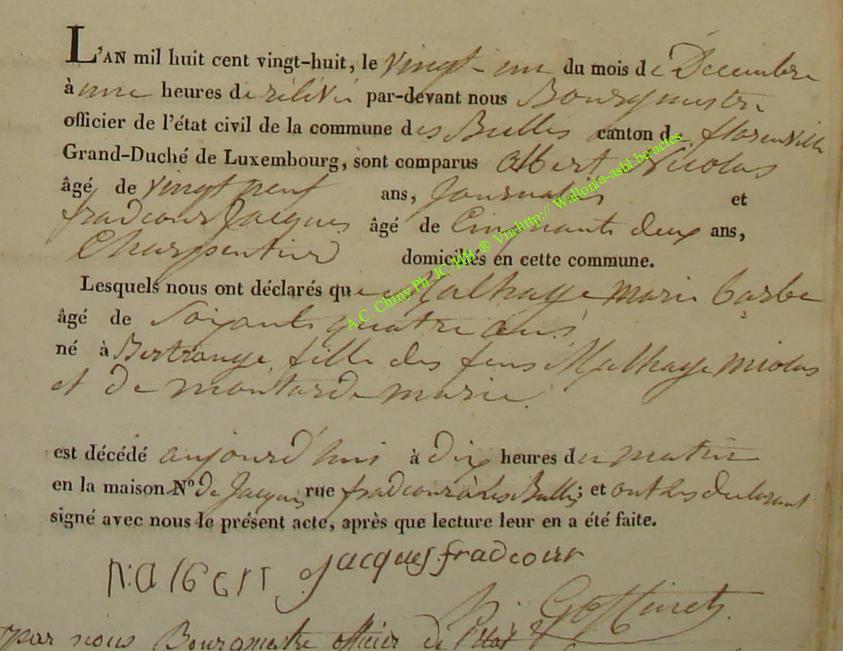 L'AN mil huit cent vingt-huit, le vingt-un du mois de Decembre
à une heures de rélivé par-devant nous Bourgmestre
officier de l'état civil de la commune des Bulles canton de florenville
Grand-Duché de Luxembourg, sont comparus Albert Nicolas
âgé de vingt neuf ans, journalis et
fradcour Jacques âgé de Cinquante deux ans,
Charpentier domiciliés en cette commune.
Lesquels nous ont déclarés que Malhage marie barbe
âgé de Soixante quatre ans
né à Bertrange, fille des feus Malhage nicolas
et de moutarde marie.
est décédé aujourd'hui à dix heures du matin
en la maison N° de Jacques rue fradcour à Les Bulles; et ont les declarant
signé avec nous le présent acte, après que lecture leur en a été faite.
n:albert Jacques fradcour
Goffinet
par nous Bourgmestre officier de l'état
A.C. Chiny Ph JC /HH ® Via http:// Wallonia-asbl.be/actes